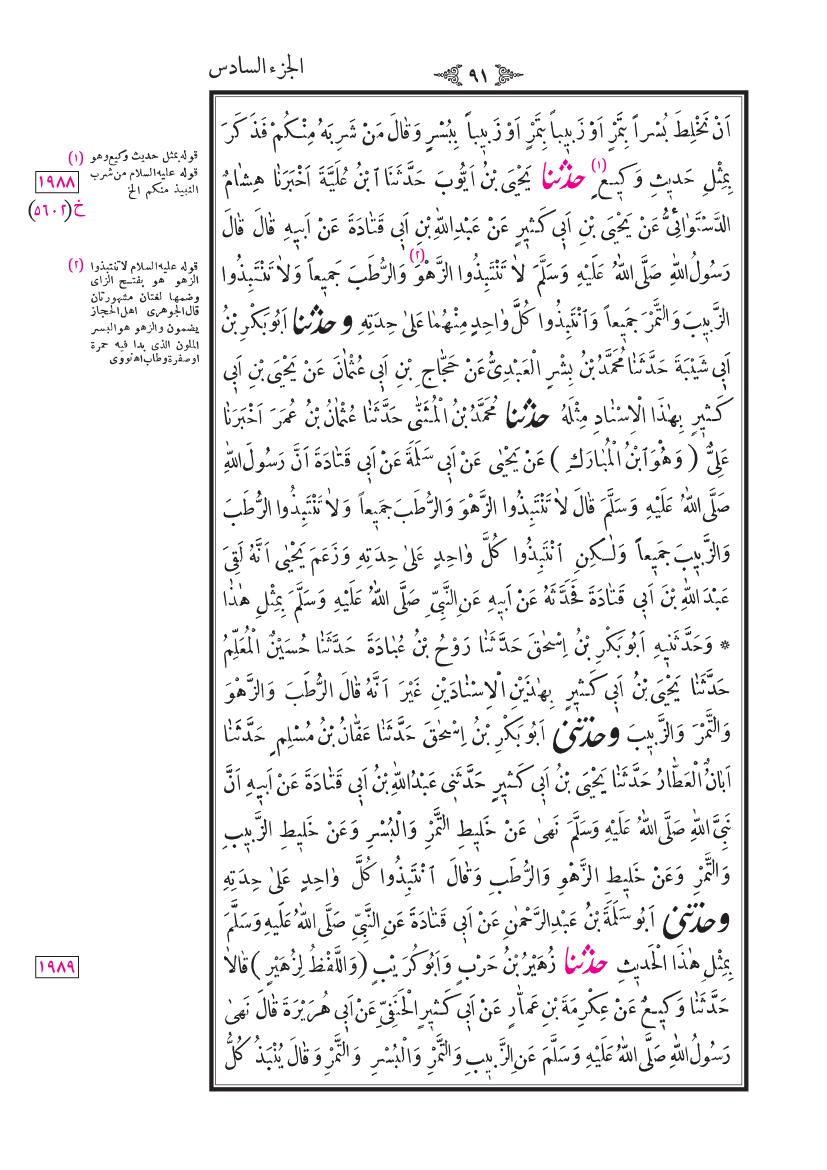 الجزء السادس
٩١
اَنْ نَخْلِطَ بُسْراً بِتَمْرٍ اَوْ زَبِيباً بِتَمْرٍ اَوْ زَبِيباً بِبُسْرٍ وَقَالَ مَنْ شَرِبَهُ مِنْكُمْ فَذَكَرَ
بِمِثْلِ حَدِيثِ وَكِيعٍ (١) حدثنا يَحْيَى بْنُ اَيُّوبَ حَدَّثَنَا ابْنُ عُلَيَّةَ اَخْبَرَنَا هِشَامٌ
الدَّسْتَوَائِىُّ عَنْ يَحْيَى بْنِ اَبِى كَثِيرٍ عَنْ عَبْدِ اللهِ بْنِ اَبِى قَتَادَةَ عَنْ اَبِيهِ قَالَ قَالَ
رَسُولُ اللهِ صَلَّى اللهُ عَلَيْهِ وَسَلَّمَ لاَ تَنْتَبِذُوا الزَّهْوَ (٢) وَالرُّطَبَ جَمِيعاً وَلاَ تَنْتَبِذُوا
الزَّبِيبَ وَالتَّمْرَ جَمِيعاً وَانْتَبِذُوا كُلَّ وَاحِدٍ مِنْهُمَا عَلَى حِدَتِهِ وحدثنا اَبُو بَكْرِ بْنُ
اَبِى شَيْبَةَ حَدَّثَنَا مُحَمَّدُ بْنُ بِشْرٍ الْعَبْدِىُّ عَنْ حَجَّاجِ بْنِ اَبِى عُثْمَانَ عَنْ يَحْيَى بْنِ اَبِى
كَثِيرٍ بِهٰذَا الْاِسْنَادِ مِثْلَهُ حدثنا مُحَمَّدُ بْنُ الْمُثَنَّى حَدَّثَنَا عُثْمَانُ بْنُ عُمَرَ اَخْبَرَنَا
عَلِىٌّ ( وَهُوَ ابْنُ الْمُبَارَكِ ) عَنْ يَحْيَى عَنْ اَبِى سَلَمَةَ عَنْ اَبِى قَتَادَةَ اَنَّ رَسُولَ اللهِ
صَلَّى اللهُ عَلَيْهِ وَسَلَّمَ قَالَ لاَ تَنْتَبِذُوا الزَّهْوَ وَالرُّطَبَ جَمِيعاً وَلاَ تَنْتَبِذُوا الرُّطَبَ
وَالزَّبِيبَ جَمِيعاً وَلٰكِنِ انْتَبِذُوا كُلَّ وَاحِدٍ عَلَى حِدَتِهِ وَزَعَمَ يَحْيَى اَنَّهُ لَقِىَ
عَبْدَ اللهِ بْنَ اَبِى قَتَادَةَ فَحَدَّثَهُ عَنْ اَبِيهِ عَنِ النَّبِىِّ صَلَّى اللهُ عَلَيْهِ وَسَلَّمَ بِمِثْلِ هٰذَا
* وَحَدَّثَنِيهِ اَبُو بَكْرِ بْنُ اِسْحٰقَ حَدَّثَنَا رَوْحُ بْنُ عُبَادَةَ حَدَّثَنَا حُسَيْنٌ الْمُعَلِّمُ
حَدَّثَنَا يَحْيَى بْنُ اَبِى كَثِيرٍ بِهٰذَيْنِ الْاِسْنَادَيْنِ غَيْرَ اَنَّهُ قَالَ الرُّطَبَ وَالزَّهْوَ
وَالتَّمْرَ وَالزَّبِيبَ وحدثنى اَبُو بَكْرِ بْنُ اِسْحٰقَ حَدَّثَنَا عَفَّانُ بْنُ مُسْلِمٍ حَدَّثَنَا
اَبَانٌ الْعَطَّارُ حَدَّثَنَا يَحْيَى بْنُ اَبِى كَثِيرٍ حَدَّثَنِى عَبْدُ اللهِ بْنُ اَبِى قَتَادَةَ عَنْ اَبِيهِ اَنَّ
نَبِىَّ اللهِ صَلَّى اللهُ عَلَيْهِ وَسَلَّمَ نَهَى عَنْ خَلِيطِ التَّمْرِ وَالْبُسْرِ وَعَنْ خَلِيطِ الزَّبِيبِ
وَالتَّمْرِ وَعَنْ خَلِيطِ الزَّهْوِ وَالرُّطَبِ وَقَالَ انْتَبِذُوا كُلَّ وَاحِدٍ عَلَى حِدَتِهِ
وحدثنى اَبُو سَلَمَةَ بْنُ عَبْدِ الرَّحْمٰنِ عَنْ اَبِى قَتَادَةَ عَنِ النَّبِىِّ صَلَّى اللهُ عَلَيْهِ وَسَلَّمَ
بِمِثْلِ هٰذَا الْحَدِيثِ حدثنا زُهَيْرُ بْنُ حَرْبٍ وَاَبُو كُرَيْبٍ (وَاللَّفْظُ لِزُهَيْرٍ) قَالاَ
حَدَّثَنَا وَكِيعٌ عَنْ عِكْرِمَةَ بْنِ عَمَّارٍ عَنْ اَبِى كَثِيرٍ الْحَنَفِىِّ عَنْ اَبِى هُرَيْرَةَ قَالَ نَهَى
رَسُولُ اللهِ صَلَّى اللهُ عَلَيْهِ وَسَلَّمَ عَنِ الزَّبِيبِ وَالتَّمْرِ وَالْبُسْرِ وَالتَّمْرِ وَقَالَ يُنْبَذُ كُلُّ
(١) قوله بمثل حديث وكيع وهو
قوله عليه السلام من شرب
النبيذ منكم الخ
١٩٨٨
خ(٥٦٠٢)
(٢) قوله عليه السلام لا تنتبذوا
الزهو هو بفتح الزاى
وضمها لغتان مشهورتان
قال الجوهرى اهل الحجاز
يضمون والزهو هو البسر
الملون الذى بدا فيه حمرة
او صفرة وطاب اه نووى
١٩٨٩